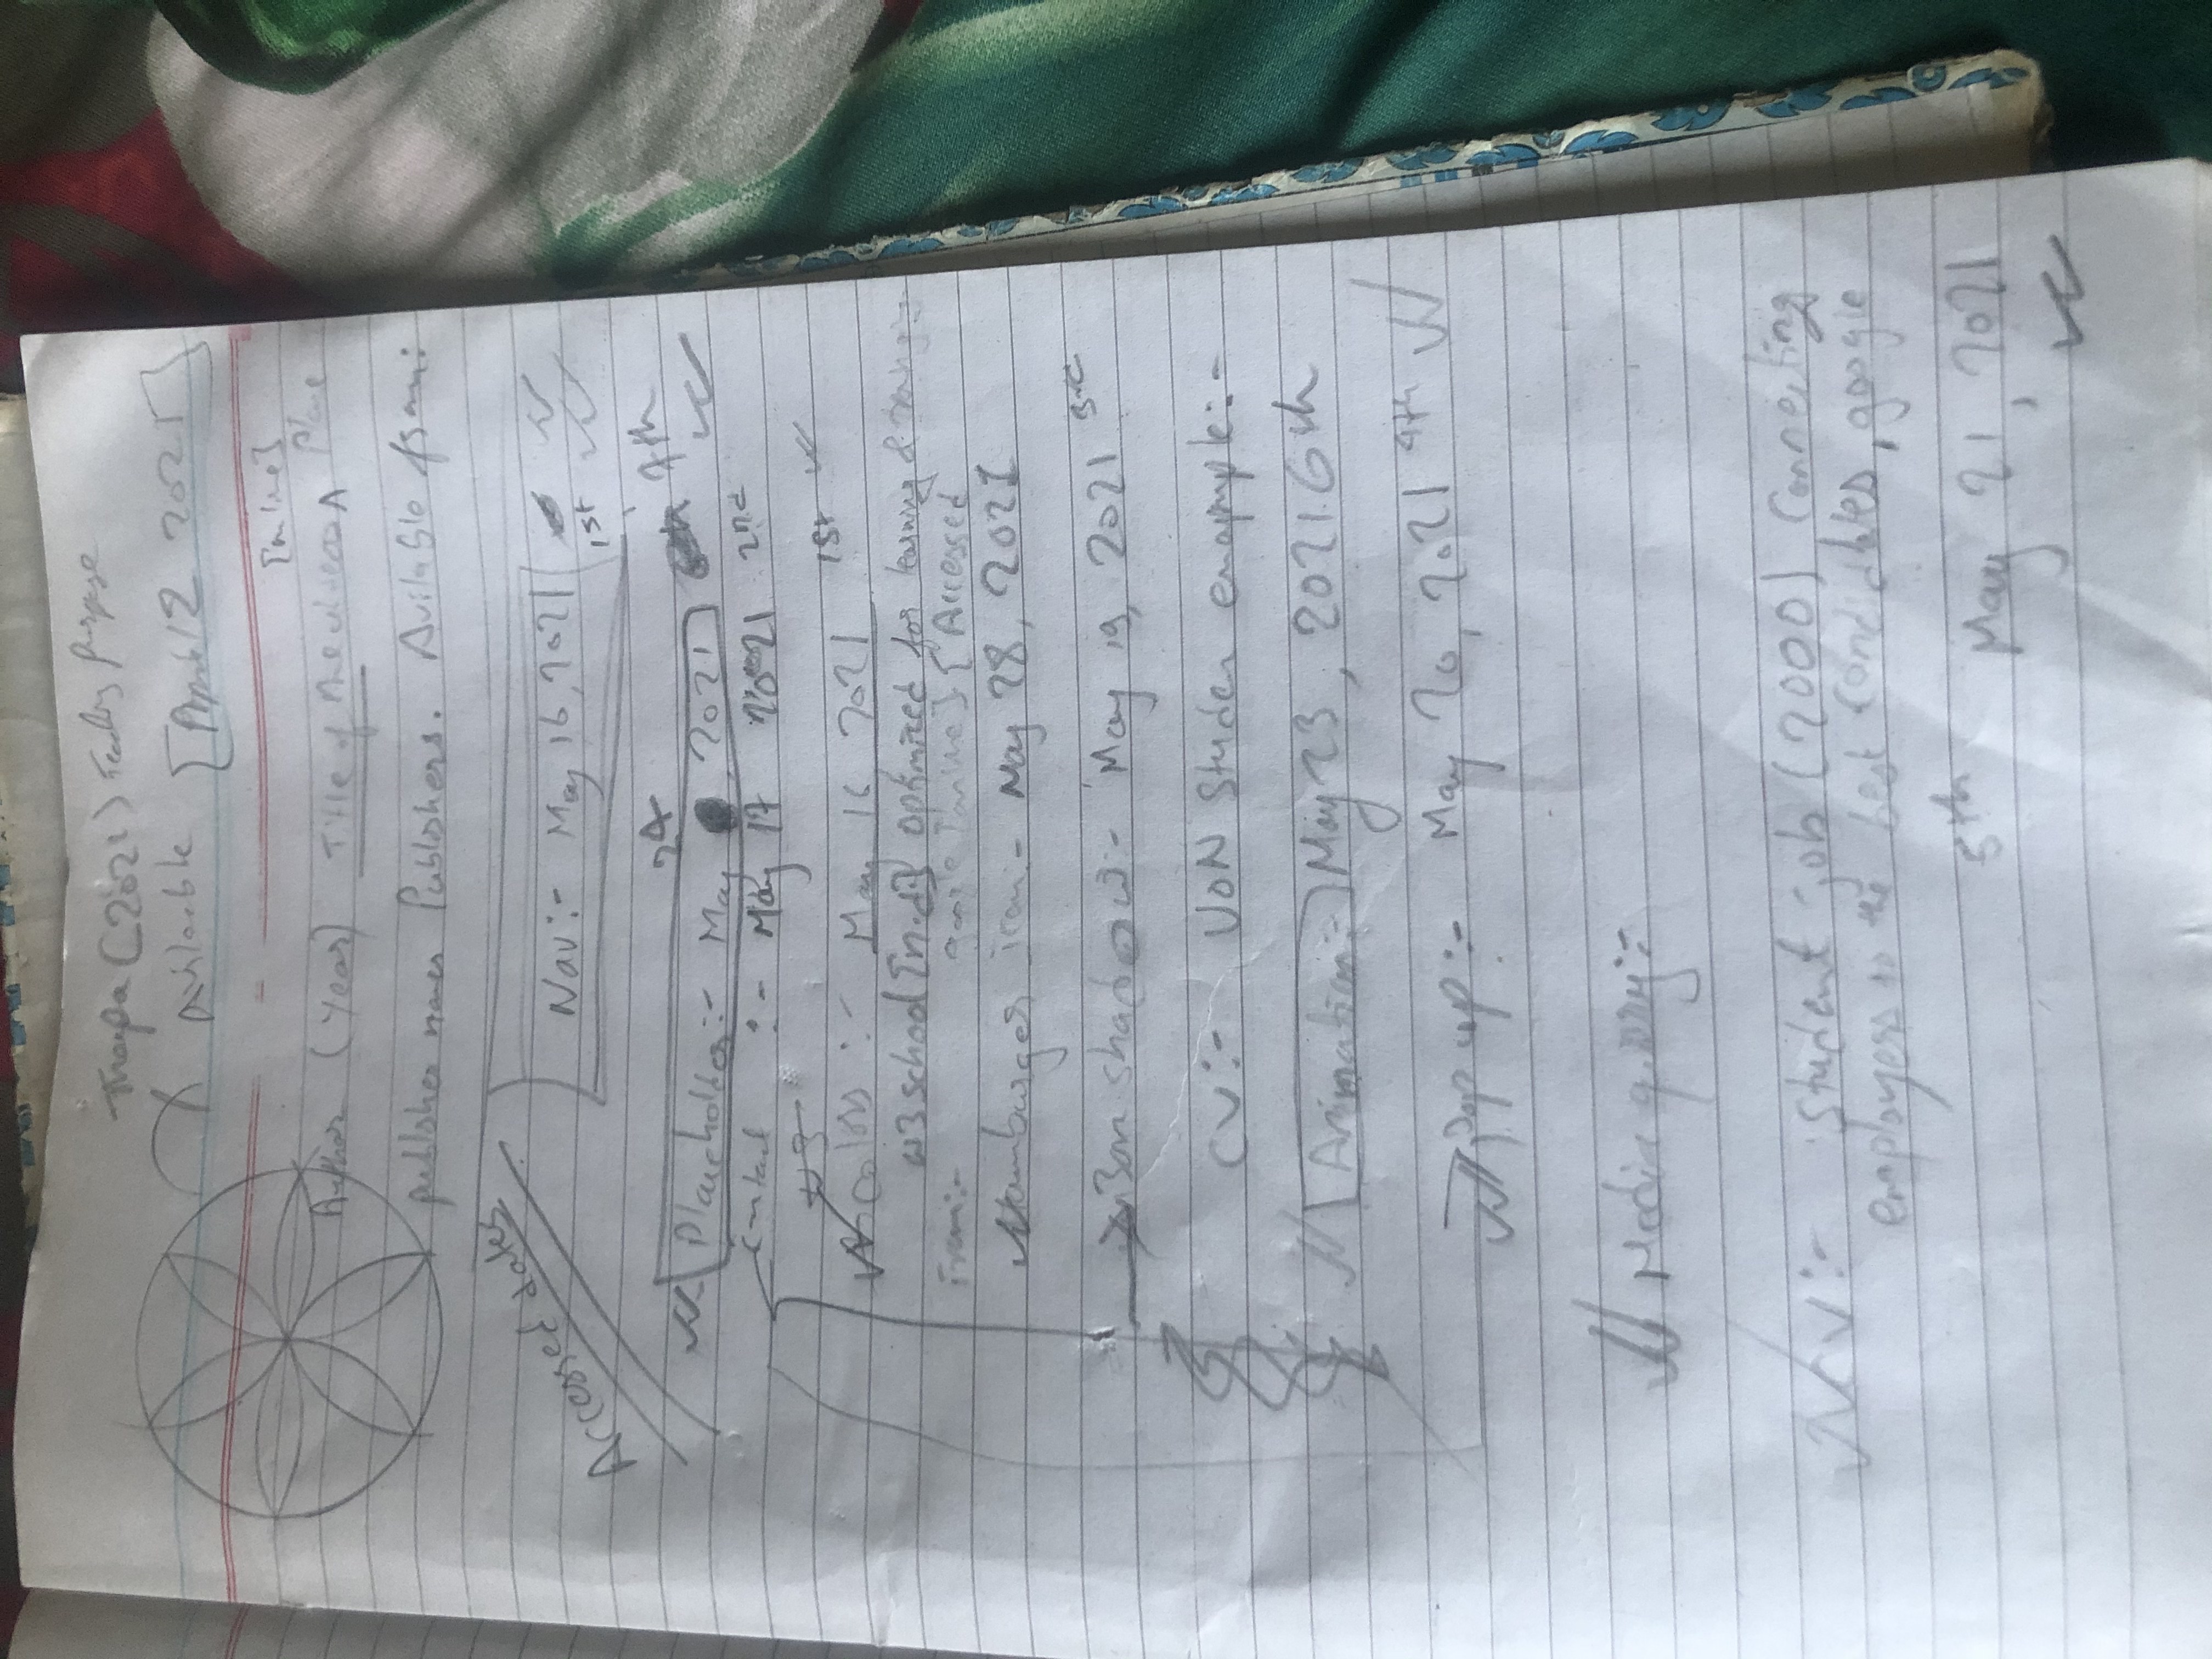 Thapa (2021) Teaching purpose
Avilaeble [April 12 2021]
[online]
Author (Year) Title of the Place
publisher names Publishers. Avilable from:
Accessed dates
Nav:- May 16, 2021
1st
24
Placeholder:- May , 2021 7th
Contact :- May 17 2021 2nd
w3
Colors :- May 16, 2021 1st
w3school [n.d.] optimized for learning &
From:- google [online] [Accessed
Hamburger icon:- May 28, 2021
Box shadow:- May 19, 2021 3rd
CV:- UON Studen
Animation:- May 23, 2021 6th
Pop up:- May 20, 2021 4th
Media query:-
CV:- Student job (2000) Connecting
employess to the best Candidates, google
5th May 21, 2021